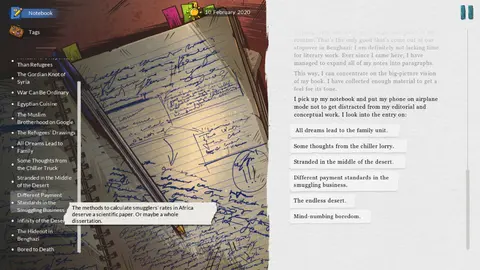 Notebook
10 February 2020
Tags
Than Refugees
The Gordian Knot of
Syria
War Can Be Ordinary
Egyptian Cuisine
The Muslim
Brotherhood on Google
The Refugees' Drawings
All Dreams Lead to
Family
Some Thoughts from
the Chiller Truck
Stranded in the Middle
of the Desert
Different Payment
Standards in the
Smuggling Business
Infinity of the Desert
The Hideout in
Benghazi
Bored to Death
The methods to calculate smugglers' rates in Africa
deserve a scientific paper. Or maybe a whole
dissertation.
stopover in Benghazi: I am definitely not lacking time
for literary work. Ever since I came here, I have
managed to expand all of my notes into paragraphs.
This way, I can concentrate on the big-picture vision
of my book. I have collected enough material to get a
feel for its tone.
I pick up my notebook and put my phone on airplane
mode not to get distracted from my editorial and
conceptual work. I look into the entry on:
All dreams lead to the family unit.
Some thoughts from the chiller lorry.
Stranded in the middle of the desert.
Different payment standards in the
smuggling business.
The endless desert.
Mind-numbing boredom.